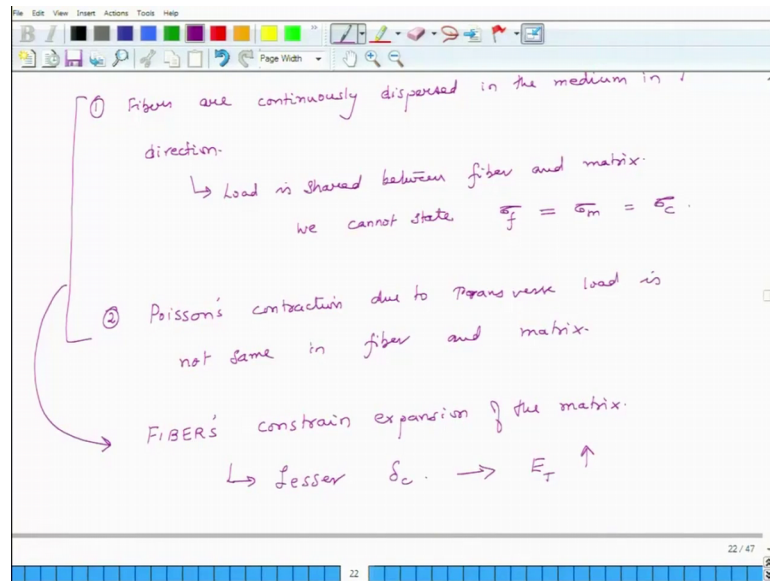 File Edit View Insert Actions Tools Help
B I
Page Width
① Fibers are continuously dispersed in the medium in
direction.
↳ Load is shared between fiber and matrix.
we cannot state σ_f = σ_m = σ_c.
② Poisson's contraction due to Transverse load is
not same in fiber and matrix.
FIBER'S constrain expansion of the matrix.
↳ Lesser δ_c. → E_T ↑
22 / 47
22